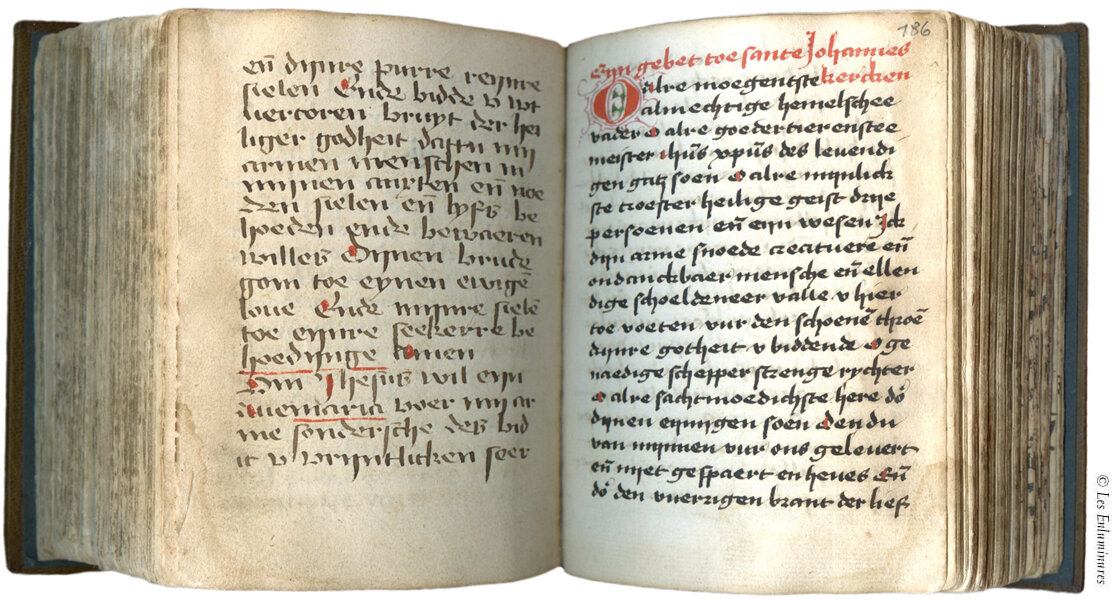 en̄ dijnre purre reijnre
sielen Ende bidde v wt
vercoren bruyt der hei
liger godheit dattu mij
armen menschen in
mijnen airften en̄ noe
den sielen en̄ lyfs be
hoeden ende bewaeren
willes Dijnen brude
gom toe eynen ewigē
loue Ende mijnre sielē
toe eijnre seekerre be
hoedijnge Amen
Om Ihesus wil eijn
auemaria voer mij ar
me sondersche des bid
ic v vrijntlicken seer
186
Eijn gebet toe sante Johannes
kercken
O alre moegentste
almechtige hemelschee
vader O alre goedertierenstee
meister ihūs xpūs des leuendi
gen gatz soen O alre mijnlick
ste troester heilige geist drije
persoenen en̄ eijn wesen Jck
dijn arme snoede creatuere en̄
ondanckbaer mensche en̄ ellen
dige schoeldeneer valle v hier
toe voeten vur den schoenē throē
dijnre gotheit v biddende O ge
naedige schepper strenge rychter
O alre sachtmoedichste here dō
dijnen eijnigen soen den du
van mijnnen vur ons geleuert
en̄ niet gespaert en heues En̄
dō den vuerrigen brant der lief
© Les Enluminures